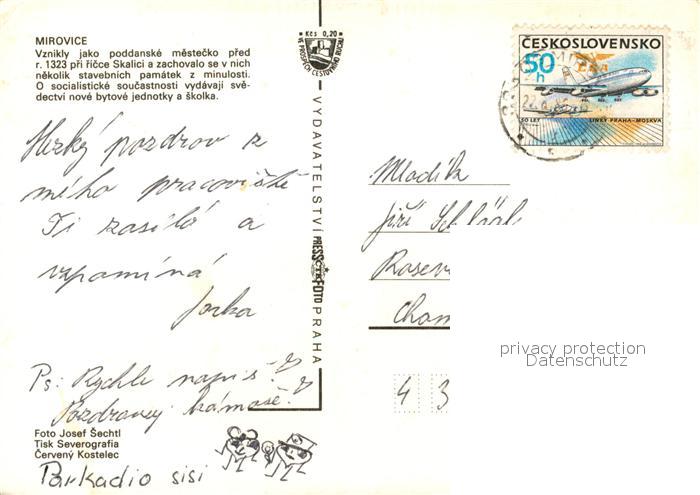 MIROVICE
Vznikly jako poddanské městečko před
r. 1323 při říčce Skalici a zachovalo se v nich
několik stavebních památek z minulosti.
O socialistické současnosti vydávají svě-
dectví nové bytové jednotky a školka.
Kčs 0,20
VE PROSPĚCH CESTOVNÍHO RUCHU
ČESKOSLOVENSKO
50 h
ČSA
50 LET LINKY PRAHA-MOSKVA
Hezký pozdrov z
mého pracoviště
Ti zasílá a
vzpomíná
Jarka
Ps: Rychle napiš!
Pozdravuj
VYDAVATELSTVÍ PRESSFOTO PRAHA
Mladík
Jiří
Chom
4 3
privacy protection
Datenschutz
Foto Josef Šechtl
Tisk Severografia
Červený Kostelec
Parkadio sisi